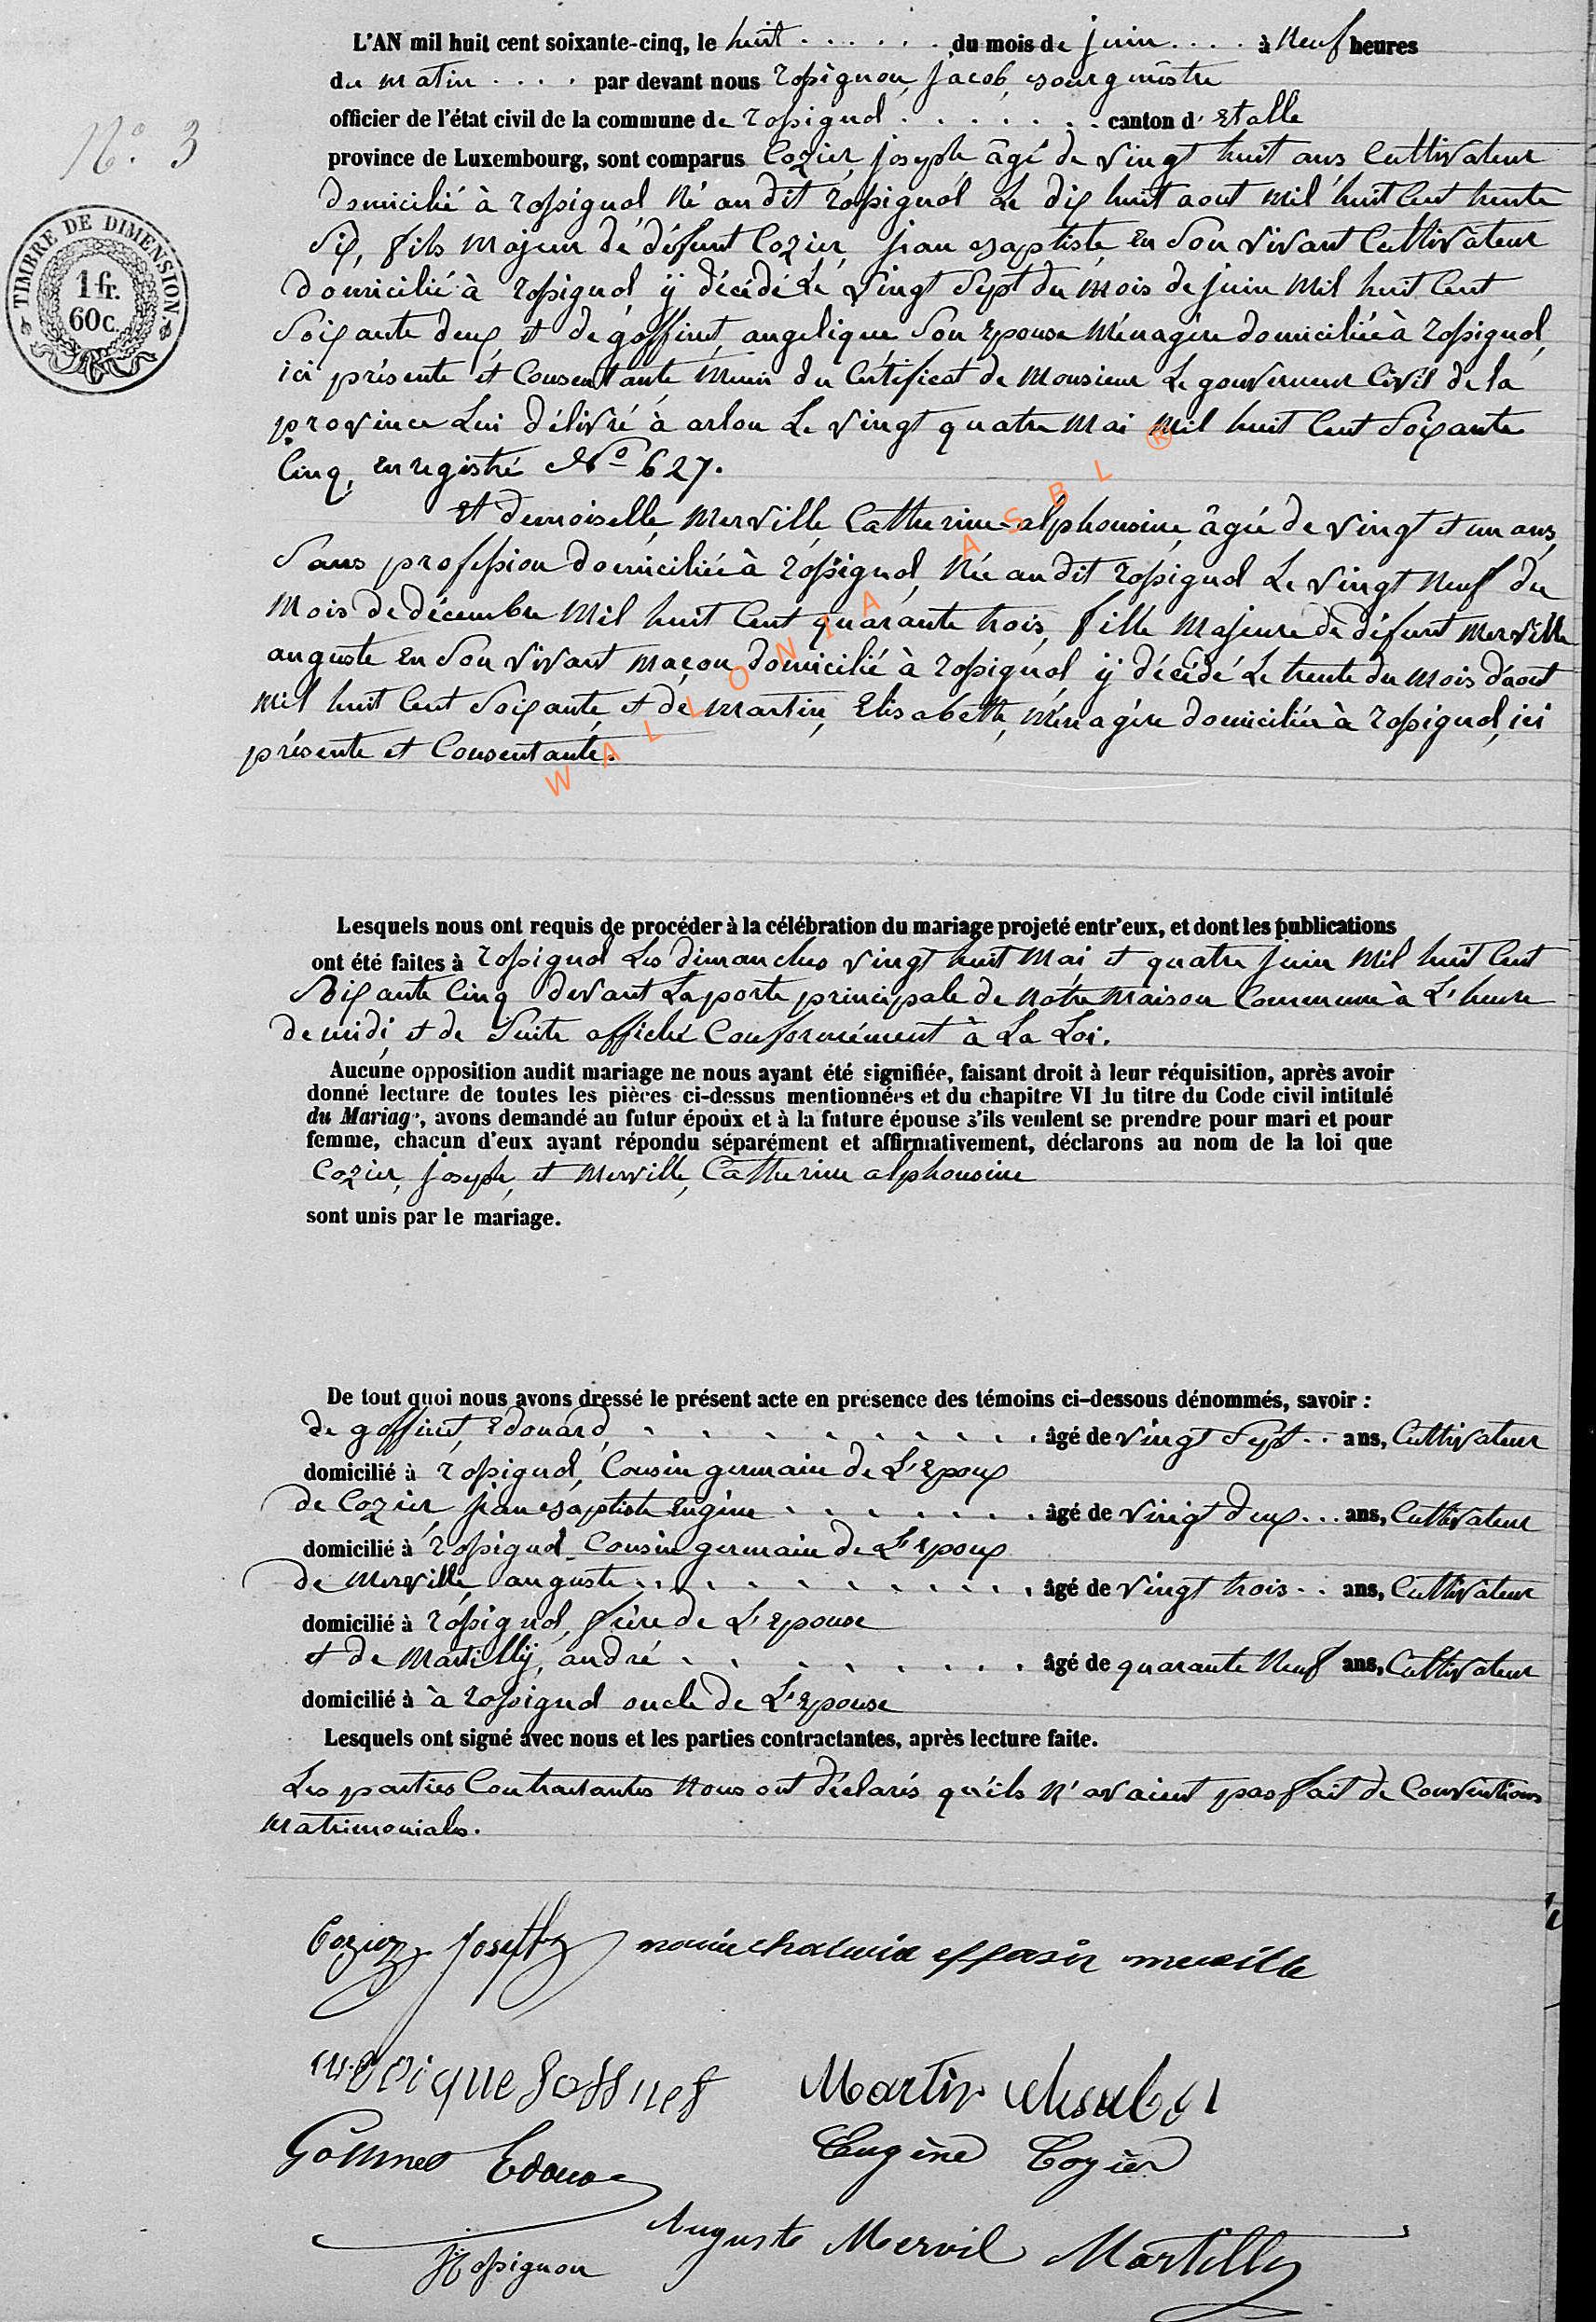 L'AN mil huit cent soixante-cinq, le huit . . . . . . du mois de juin . . . . à Neuf heures
du matin . . . . par devant nous Rossignon, Jacob, Bourgmestre
officier de l'état civil de la commune de Rossignol . . . . . . . canton d' Etalle
N° 3
province de Luxembourg, sont comparus Cozier, Joseph âgé de vingt huit ans Cultivateur
domicilié à Rossignol Né au dit Rossignol Le dix huit aout mil huit Cent trente
TIMBRE DE DIMENSION.
1 fr.
60 c.
Six, fils majeur de défunt Cozier, jean Baptiste, en Son vivant Cultivateur
domicilié à Rossignol ÿ décédé Le vingt Sept du Mois de juin Mil huit Cent
Soixante deux et de goffinet, angelique Son Epouse Ménagère domiciliée à Rossignol,
ici présente et Consentante Muni du Certificat de Monsieur Le gouverneur Civil de la
province Lui délivré à arlon Le vingt quatre Mai Mil huit Cent Soixante
Cinq, enregistré N° 627.
Et demoiselle, Merville, Catherine-alphonsine, âgée de vingt et un ans,
Sans profession domiciliée à Rossignol, Née au dit Rossignol Le vingt Neuf du
Mois de décembre Mil huit Cent quarante trois, fille Majeure de défunt Merville
auguste en Son vivant maçon domicilié à Rossignol ÿ décédé Le trente du Mois d'aout
Mil huit Cent Soixante et de Martin, Elisabeth, Ménagère domiciliée à Rossignol, ici
présente et Consentante.
WALLONIA ASBL ®
Lesquels nous ont requis de procéder à la célébration du mariage projeté entr'eux, et dont les publications
ont été faites à Rossignol Les dimanches vingt huit Mai et quatre juin Mil huit Cent
Soixante Cinq devant La porte principale de Notre Maison Commune à L'heure
de midi, et de Suite affiché Conformément à La Loi.
Aucune opposition audit mariage ne nous ayant été signifiée, faisant droit à leur réquisition, après avoir
donné lecture de toutes les pièces ci-dessus mentionnées et du chapitre VI du titre du Code civil intitulé
du Mariage, avons demandé au futur époux et à la future épouse s'ils veulent se prendre pour mari et pour
femme, chacun d'eux ayant répondu séparément et affirmativement, déclarons au nom de la loi que
Cozier, Joseph, et Merville, Catherine alphonsine
sont unis par le mariage.
De tout quoi nous avons dressé le présent acte en présence des témoins ci-dessous dénommés, savoir :
de goffinet, Edouard, . . . . . . . . . âgé de vingt Sept . . ans, Cultivateur
domicilié à Rossignol, Cousin germain de L'Epoux
de Cozier, jean Baptiste Eugène . . . . . . . âgé de vingt deux . . . ans, Cultivateur
domicilié à Rossignol Cousin germain de L'Epoux
de Merville, auguste . . . . . . . . . . âgé de vingt trois . . ans, Cultivateur
domicilié à Rossignol, frère de L'Epouse
et de Martilly, andré . . . . . . . . âgé de quarante Neuf ans, Cultivateur
domicilié à à Rossignol oncle de L'Epouse
Lesquels ont signé avec nous et les parties contractantes, après lecture faite.
Les parties Contractantes Nous ont déclarés qu'ils N'avaient pas fait de Conventions
Matrimoniales.
Cozier Joseph
Martin
Eugène Cozier
Auguste Mervil Martilly
JRossignon